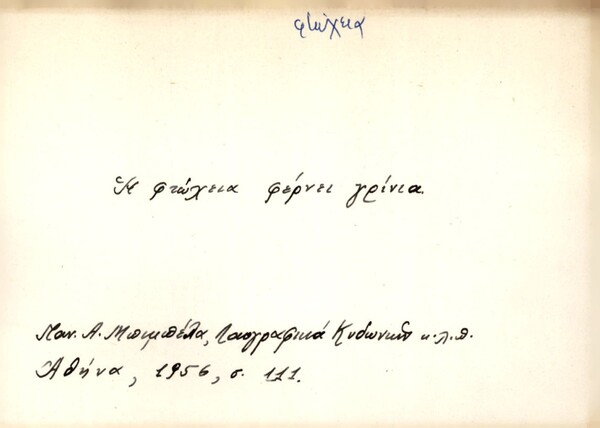 φτώχεια
Ἡ φτώχεια φέρνει γρίνια.
Μαν. Α. Μπιμπέλα, Λαογραφικά Κυδωνιῶν κ.λ.π.
Ἀθήνα, 1956, σ. 111.